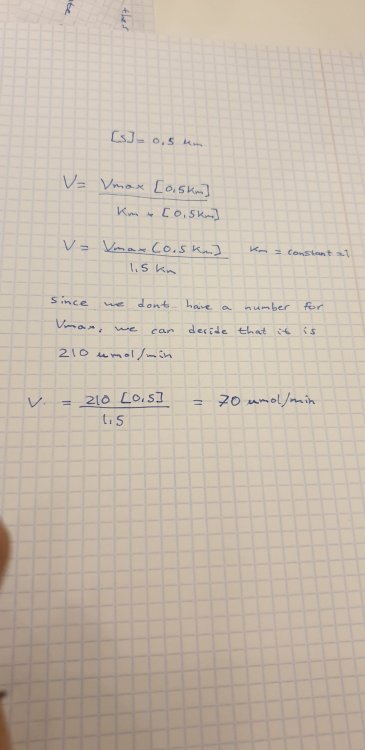 [S] = 0,5 Km
V = Vmax [0,5 Km]
Km + [0,5 Km]
V = Vmax [0.5 Km] Km = constant = 1
1.5 Km
Since we dont have a number for
Vmax, we can decide that it is
210 umol/min
V = 210 [0,5] = 70 umol/min
1.5